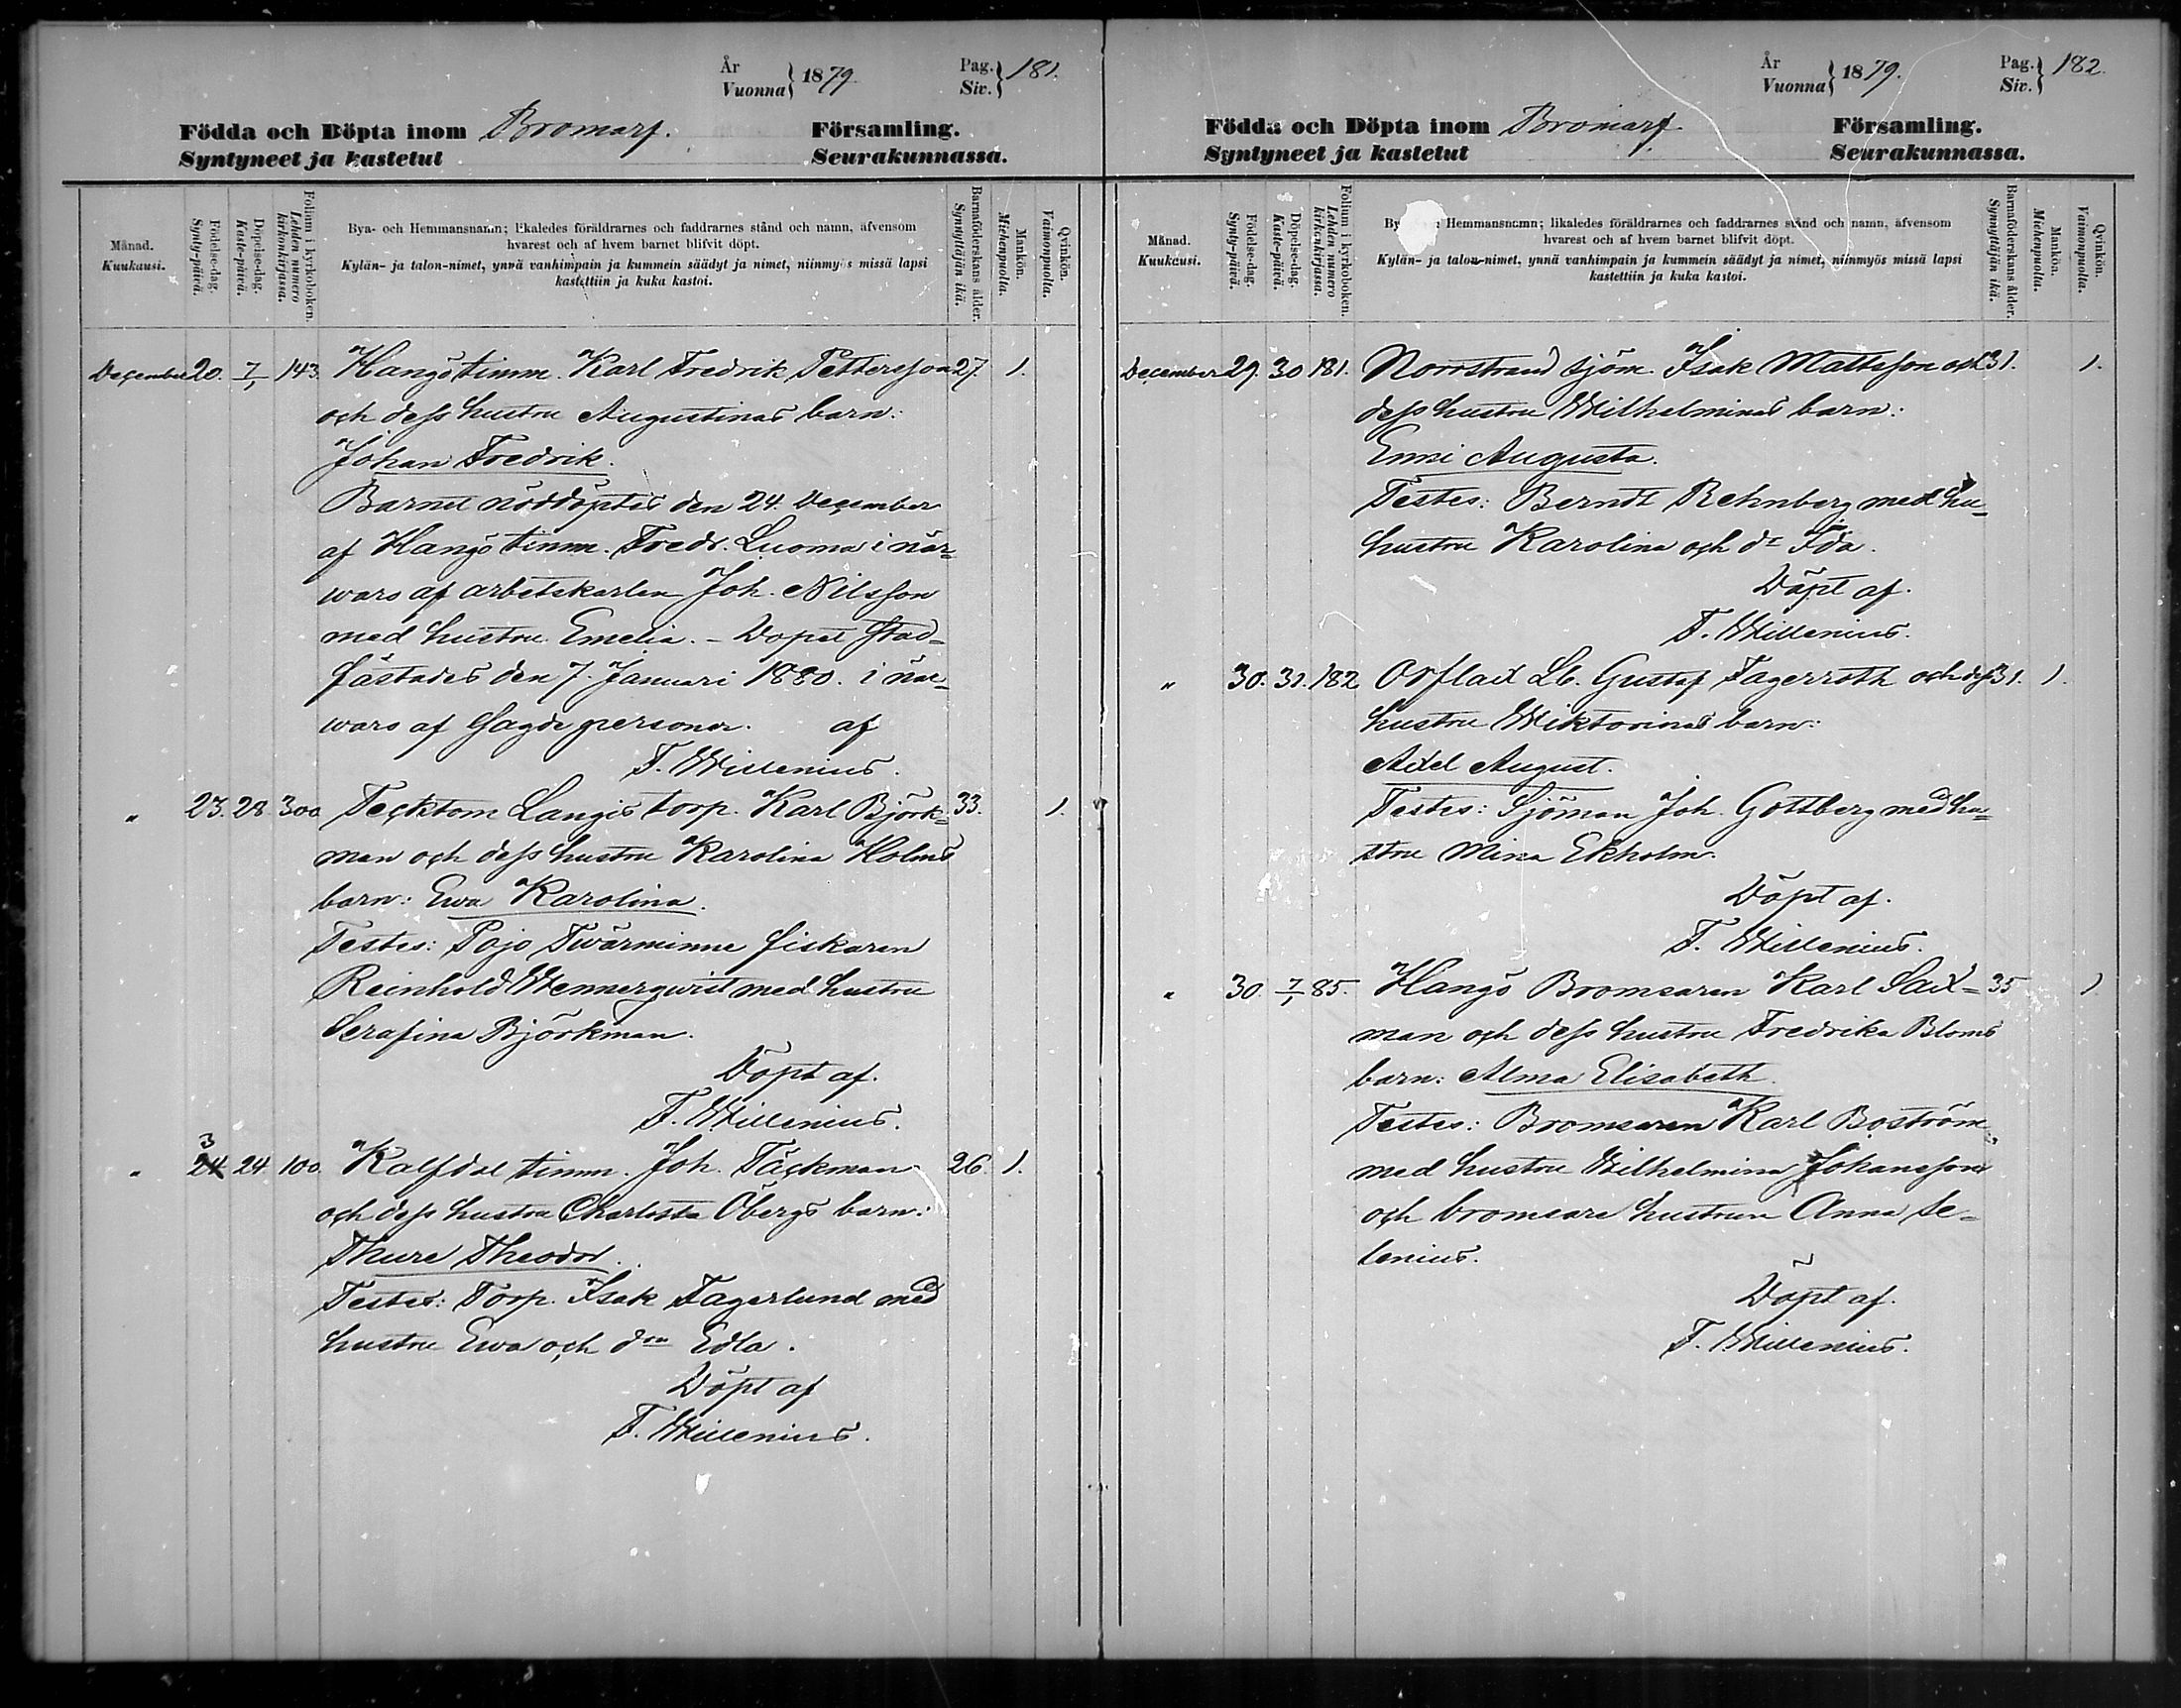 År
Vuonna } 1879. Pag. Siv. } 181.
Födda och Döpta inom Bromarf. Församling.
Syntyneet ja kastetut Seurakunnassa.
Månad.
Kuukausi.
Födelse-dag.
Synty-päivä.
Döpelse-dag.
Kaste-päivä.
Folium i kyrkoboken.
Lehden numero kirkonkirjassa.
Bya- och Hemmansnamn; likaledes föräldrarnes och faddrarnes stånd och namn, äfvensom
hvarest och af hvem barnet blifvit döpt.
Kylän- ja talon-nimet, ynnä vanhimpain ja kummein säädyt ja nimet, niinmyös missä lapsi
kastettiin ja kuka kastoi.
Barnaföderskans ålder.
Synnyttäjän ikä.
Mankön.
Miehenpuolia.
Qvinkön.
Vaimonpuolia.
December 20. 7/1 143. Hangö timm. Karl Fredrik Pettersson 27. 1.
och dess hustru Augustinas barn:
Johan Fredrik.
Barnet nöddöptes den 24. December
af Hangö timm. Fredr. Luoma i när-
waro af arbetskarlen Joh. Nilsson
med hustru Emelia. – Dopet stad-
fästades den 7. Januari 1880. i när-
waro af sagde personer. af
F. Willenius.
" 23. 28. 300. Tecktom Langis torp. Karl Björk- 33. 1.
man och dess hustru Karolina Holms
barn: Ewa Karolina.
Testes: Pojo Twärminne fiskaren
Reinhold Wennerqwist med hustru
Serafina Björkman.
Döpt af.
F. Willenius.
3
" 24 24. 100. Kalfdal timm. Joh. Täckman 26. 1.
och dess hustru Charlotta Öbergs barn:
Thure Theodor.
Testes: Torp. Isak Fagerlund med
hustru Ewa och dr Edla.
Döpt af
F. Willenius.
År
Vuonna } 1879. Pag. Siv. } 182.
Födda och Döpta inom Bromarf. Församling.
Syntyneet ja kastetut Seurakunnassa.
Månad.
Kuukausi.
Födelse-dag.
Synty-päivä.
Döpelse-dag.
Kaste-päivä.
Folium i kyrkoboken.
Lehden numero kirkonkirjassa.
Hemmansnamn; likaledes föräldrarnes och faddrarnes stånd och namn, äfvensom
hvarest och af hvem barnet blifvit döpt.
Kylän- ja talon-nimet, ynnä vanhimpain ja kummein säädyt ja nimet, niinmyös missä lapsi
kastettiin ja kuka kastoi.
Barnaföderskans ålder.
Synnyttäjän ikä.
Mankön.
Miehenpuolia.
Qvinkön.
Vaimonpuolia.
December 29. 30 181. Norrstrand sjöm. Isak Mattsson och 31. 1.
dess hustru Wilhelminas barn:
Enni Augusta.
Testes: Berndt Rehnberg med hu-
hustru Karolina och dr Ida.
Döpt af.
F. Willenius.
" 30. 31. 182 Orslax Lb. Gustaf Fagerroth och dess 31. 1.
hustru Wiktorinas barn:
Axel August.
Testes: Sjöman Joh. Gottberg med hu-
stru Mina Ekholm.
Döpt af.
F. Willenius.
" 30. 7/1 85. Hangö Bromsaren Karl Sax- 35 1.
man och dess hustru Fredrika Bloms
barn: Alma Elisabeth.
Testes: Bromsaren Karl Boström
med hustru Wilhelmina Johansson
och bromsare hustrun Anna Se-
lenius.
Döpt af.
F. Willenius.